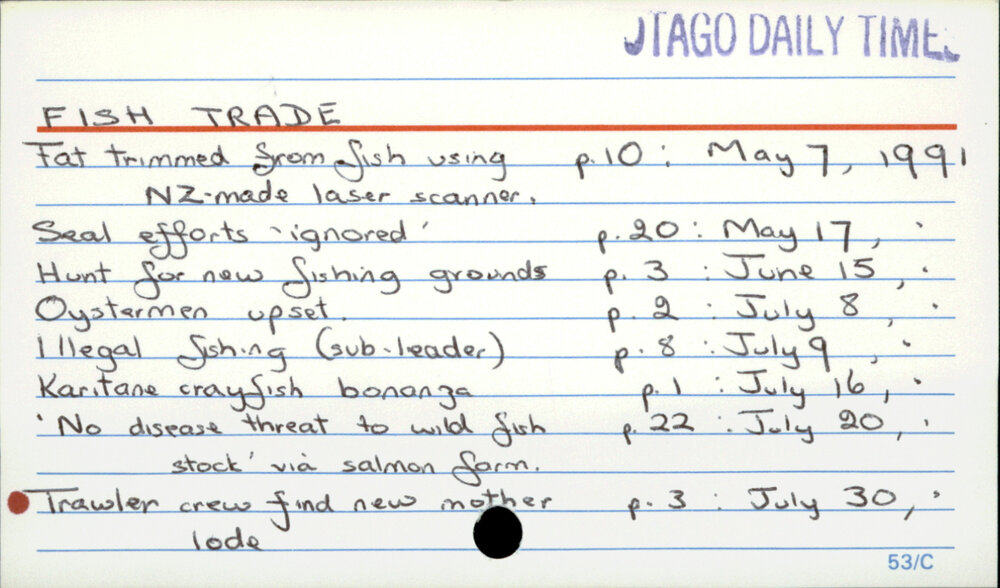 OTAGO DAILY TIMES
FISH TRADE
Fat trimmed from fish using p. 10 : May 7, 1991
NZ-made laser scanner.
Seal efforts 'ignored' p. 20 : May 17, "
Hunt for new fishing grounds p. 3 : June 15, "
Oystermen upset. p. 2 : July 8, "
Illegal fishing (sub-leader) p. 8 : July 9, "
Karitane crayfish bonanza p. 1 : July 16, "
'No disease threat to wild fish p. 22 : July 20, "
stock' via salmon farm.
Trawler crew find new mother p. 3 : July 30, "
lode
53/C